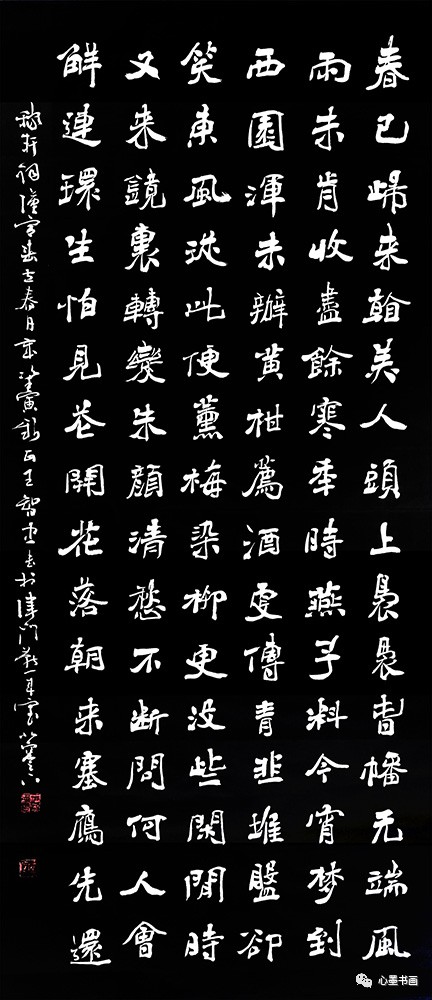 春已歸来看美人頭上裊裊旾幡无端風
雨未肯收盡餘寒秊時燕子料今宵梦到
西園渾未辦黄柑薦酒更傳青韭堆盤却
笑東風從此便薰梅染柳更没些閑閒時
又来鏡裏轉變朱顔清愁不断問何人會
解連環生怕見花開花落朝来塞鴈先還
稼軒詞漢宫春立春日
心墨书画